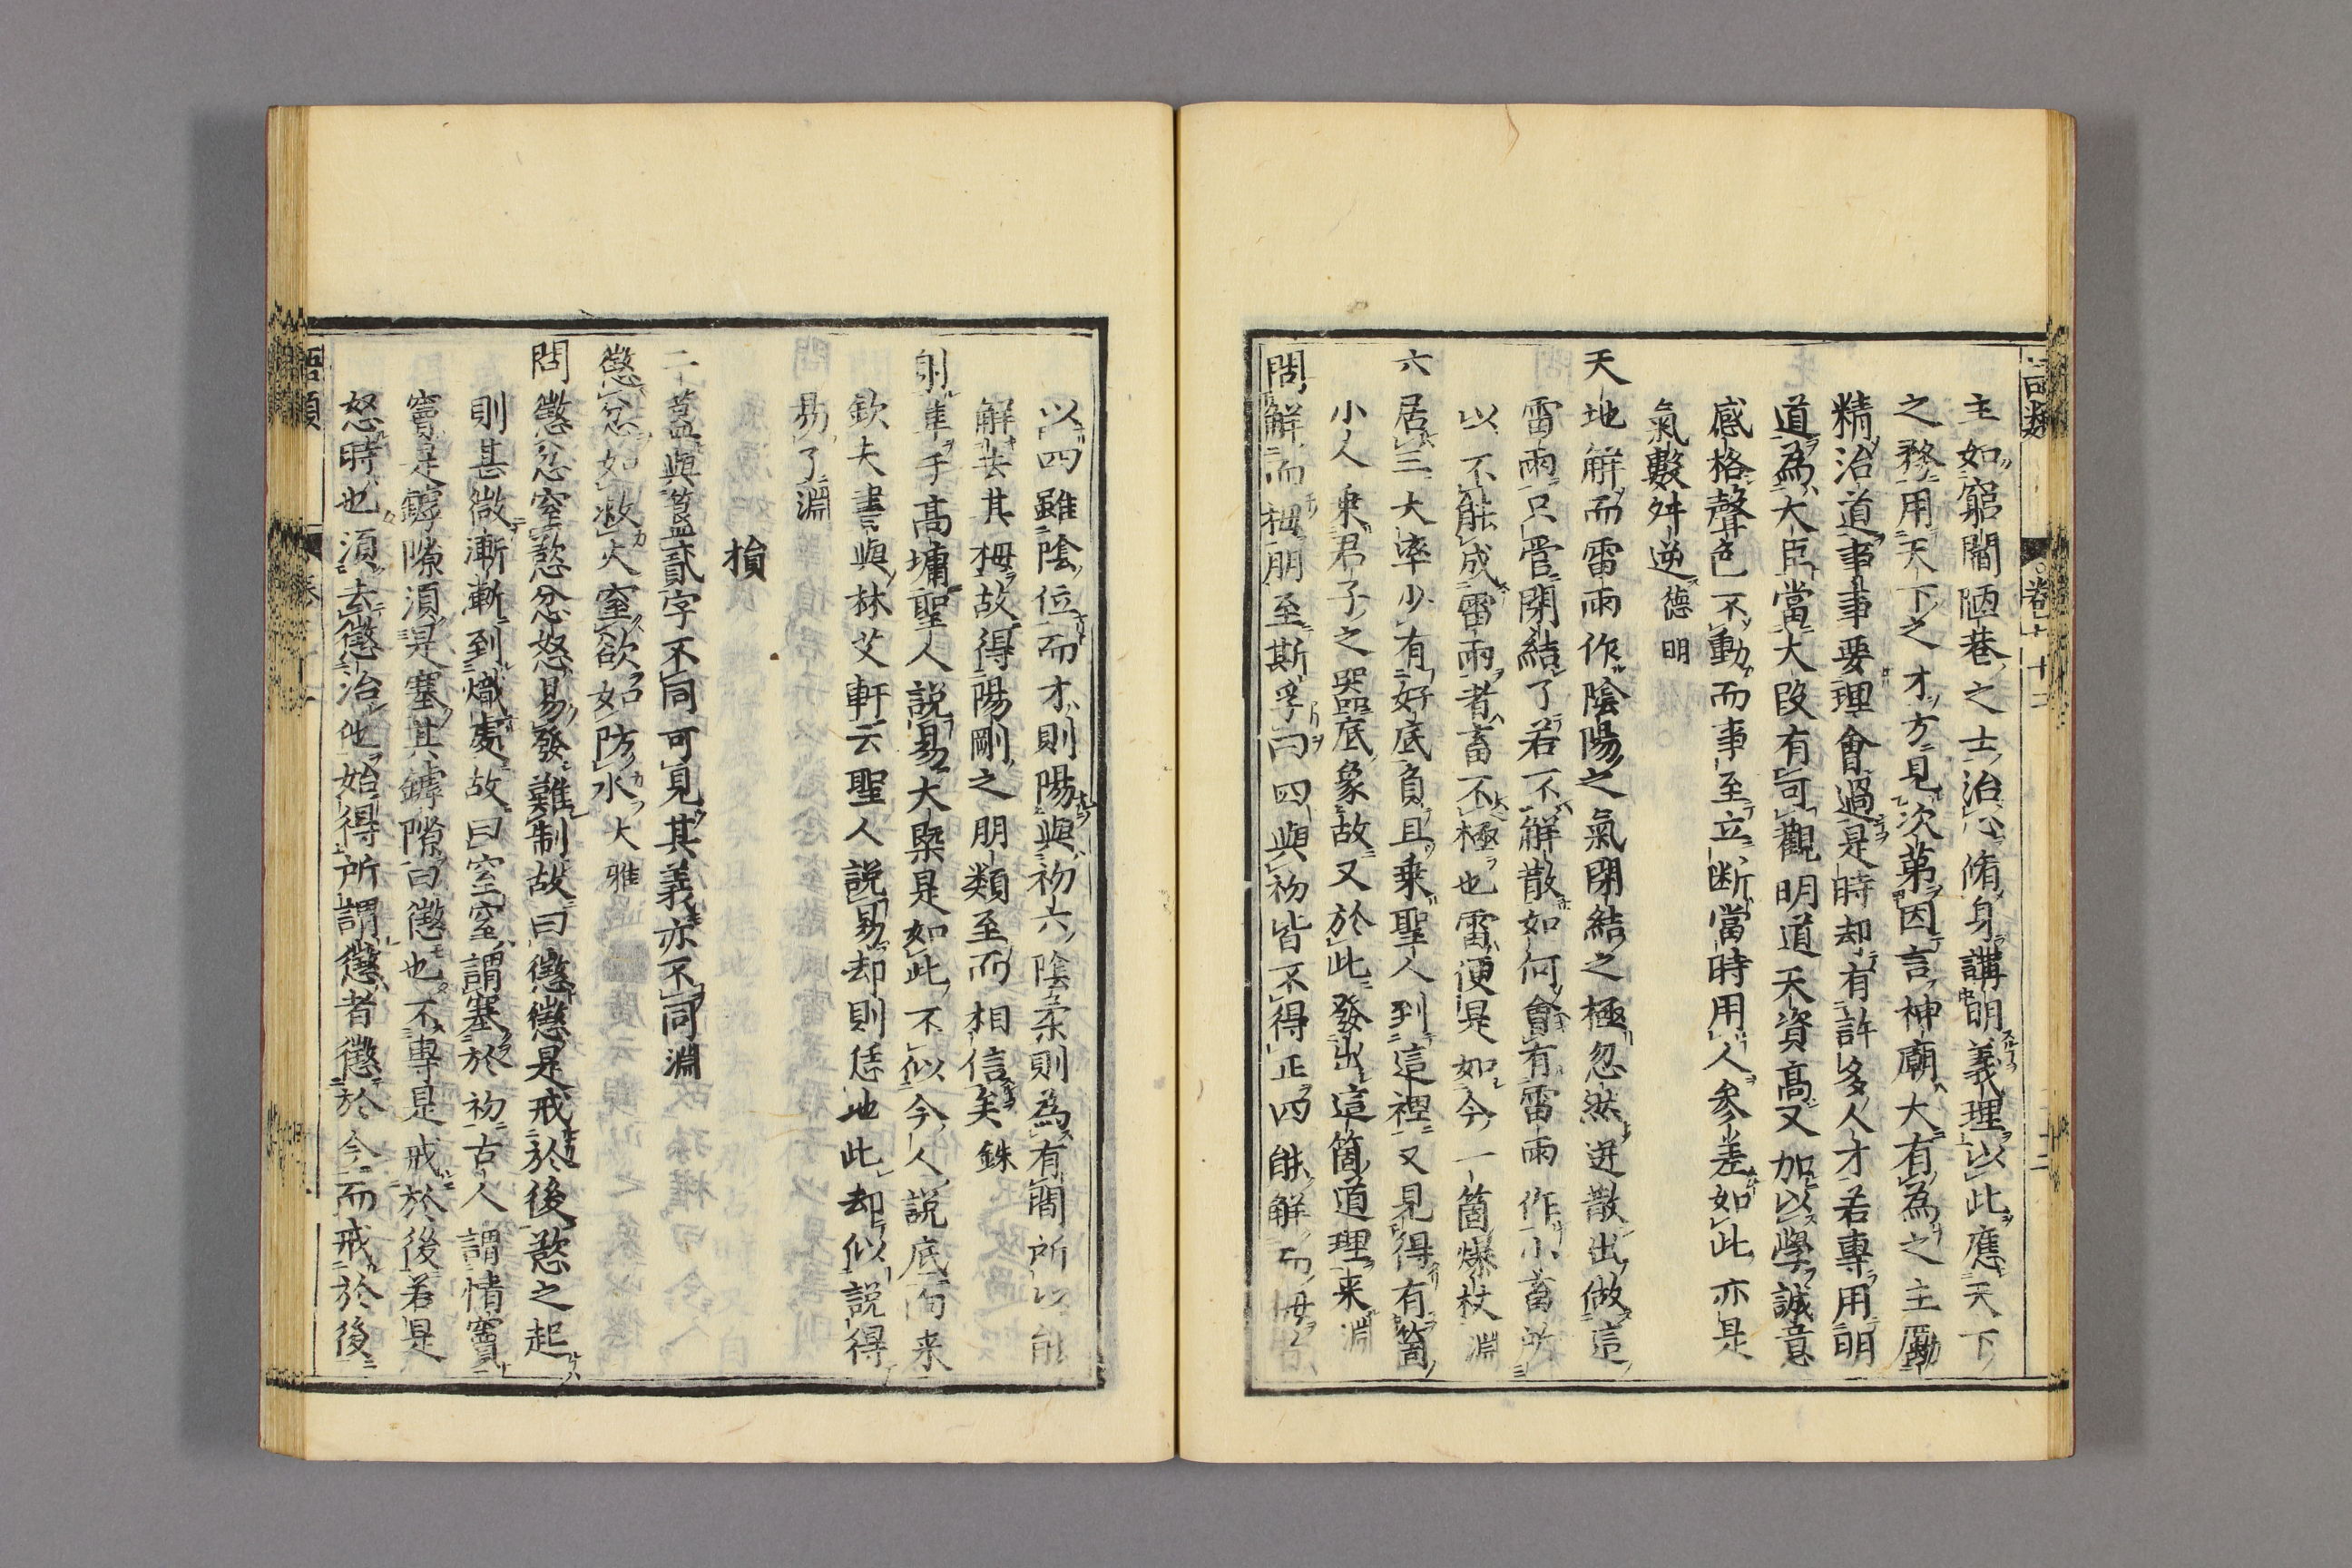 主如窮閻陋巷之士治心脩身講明義理以此應天下
之務用天下之才方見次第因言神廟大有為之主勵
精治道事事要理會過是時却有許多人才若專用明
道為大臣當大段有可觀明道天資髙又加以學誠意
感格聲色不動而事至立断當時用人参差如此亦是
氣數舛逆德明
天地解而雷雨作陰陽之氣閉結之極忽然迸散出做這
雷雨只管閉結了若不解散如何會有雷雨作小畜所
以不能成雷雨者畜不極也雷便是如今一箇爆杖淵
六居三大率少有好底負且乗聖人到這裡又見得有箇
小人乗君子之器底象故又於此發出這箇道理来淵
問解而拇朋至斯孚曰四與初皆不得正四能解而拇
以四雖陰位而才則陽與初六陰柔則為有間所以能
解去其拇故得陽剛之朋類至而相信矣銖
射隼于髙墉聖人説易大槩是如此不似今人説底向来
欽夫書與林艾軒云聖人説易却則恁地此却似説得
易了淵
損
二簋與簋貳字不同可見其義亦不同淵
懲忿如救火窒欲如防水大雅
問懲忿窒慾忿怒易發難制故曰懲懲是戒於後慾之起
則甚微漸漸到熾處故曰窒窒謂塞於初古人謂情竇
竇是罅隙須是塞其罅隙曰懲也不専是戒於後若是
怒時也須去懲治他始得所謂懲者懲於今而戒於後
語類
卷